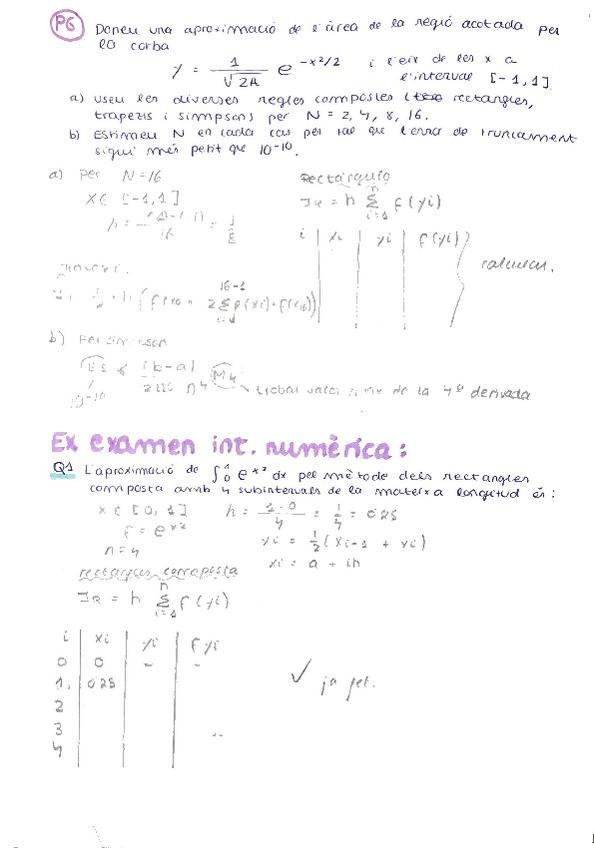 P6 Doneu una aproximació de l'àrea de la regió acotada per
la corba
y = 1/√2π e^(-x²/2) i l'eix de les x a
l'interval [-1,1]
a) useu les diverses regles compostes (rectangles,
trapezis i simpson) per N = 2, 4, 8, 16.
b) Estimeu N en cada cas per tal que l'error de truncament
sigui més petit que 10^-10.
a) per N=16
x ∈ [-1,1]
Rectangulo
I_R = h Σ f(yi)
i | xi | yi | f(yi)
calcular.
b) Per simpson
Es ≤ (b-a) M4
10^-10
trobar valor de la 4ª derivada
Ex examen int. numèrica:
Q1 L'aproximació de ∫₀¹ e^x² dx pel mètode dels rectangles
composta amb 4 subintervals de la mateixa longitud és:
x ∈ [0,1] h = 1-0/4 = 1/4 = 0'25
f = e^x²
yi = 1/2 (xi-1 + xi)
n = 4
xi = a + ih
rectangles composta
I_R = h Σ f(yi)
i | xi | yi | f yi
0 | 0 | - | -
1 | 0'25
2
3
4
✓ ja fet.